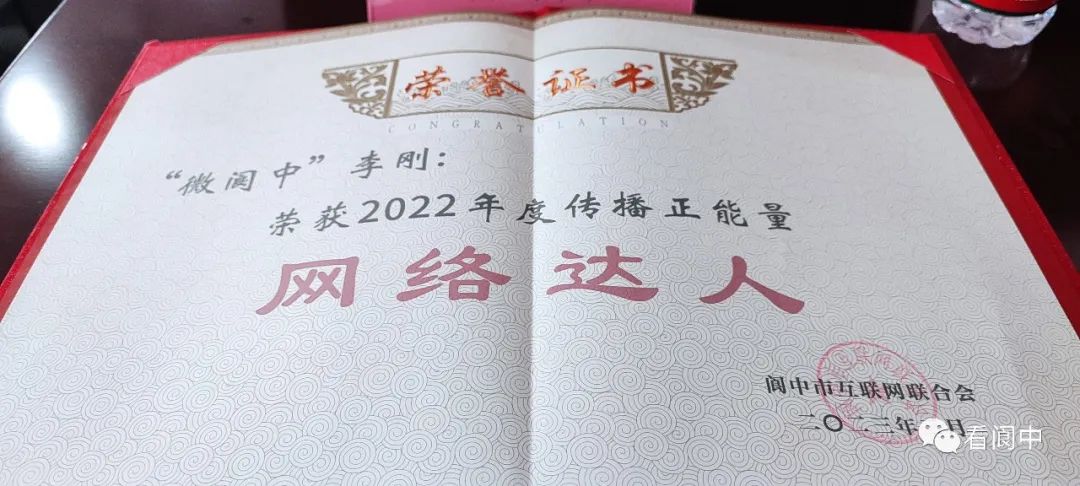 荣誉证书
CONGRATULATION
“微阆中”李刚：
荣获2022年度传播正能量
网络达人
阆中市互联网联合会
二〇二三年 月
看阆中